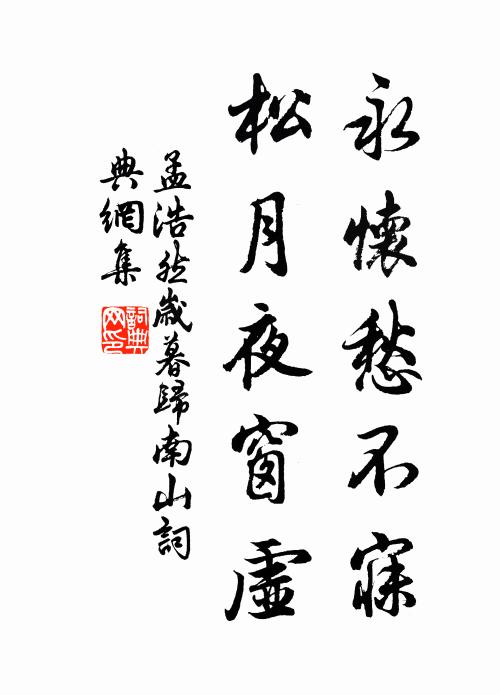 永懷愁不寐
松月夜窗虛
孟浩然歲暮歸南山詞
典網集
詞典
网印